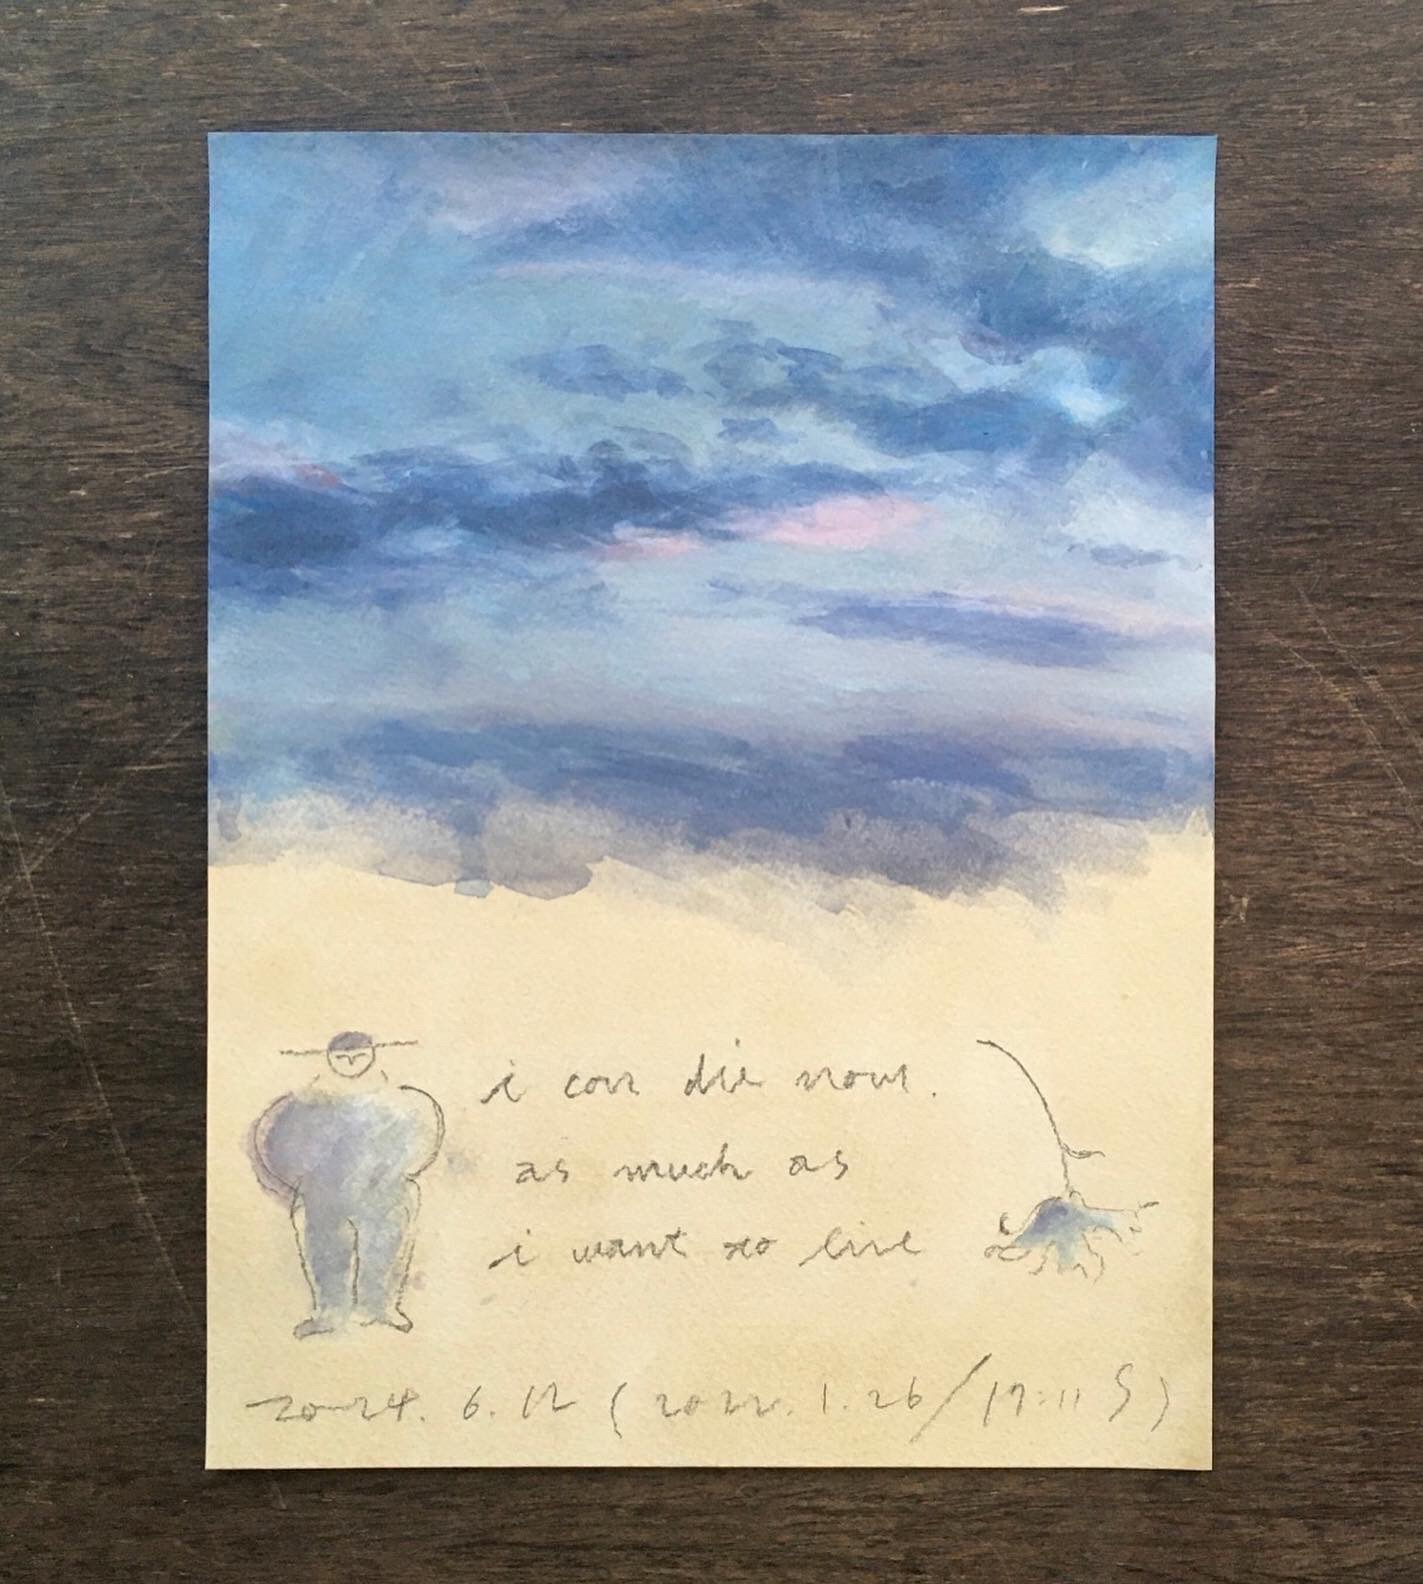 i can die now.
as much as
i want to live
2024. 6. 12 ( 2022. 1. 26 / 17:11 S )